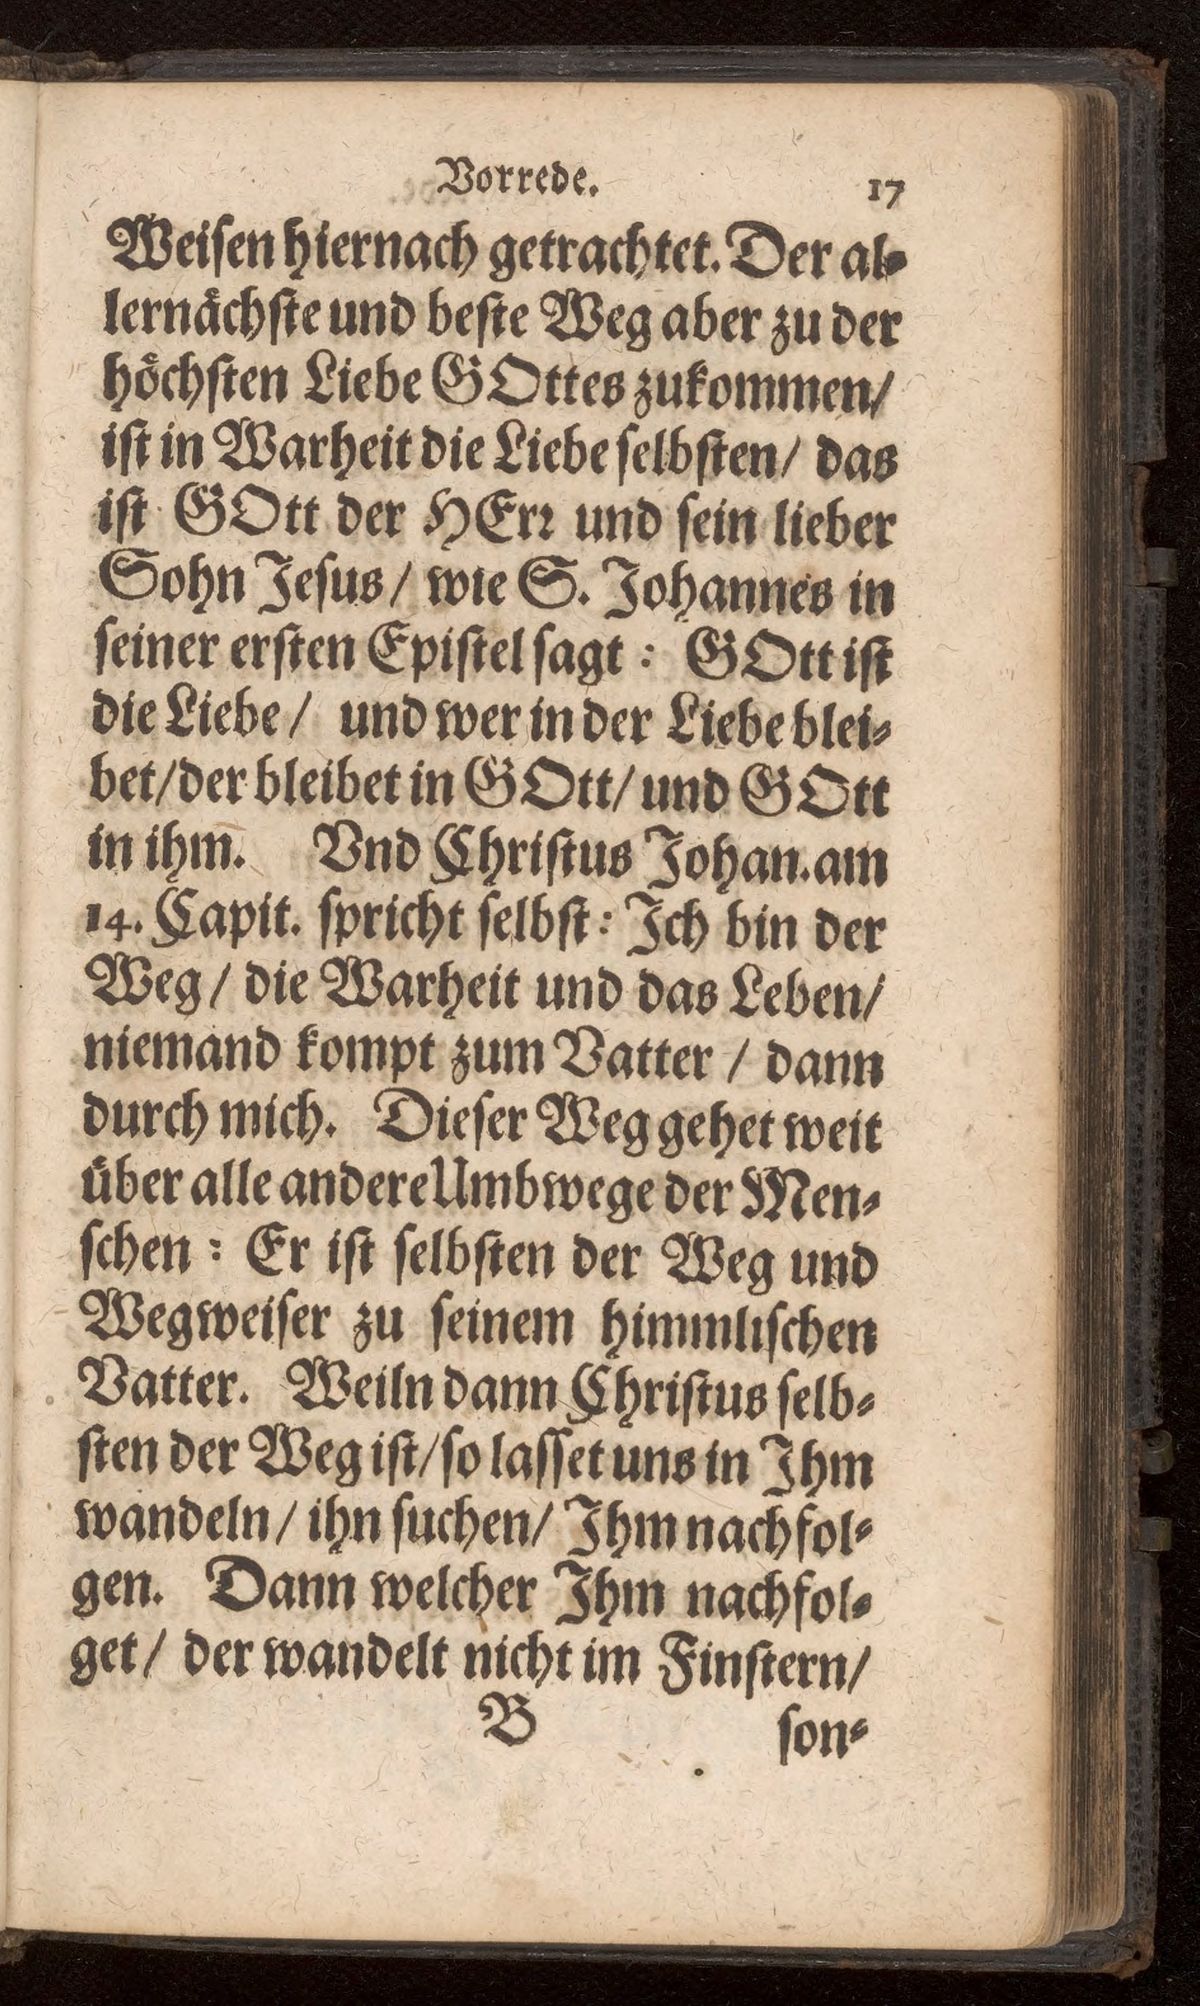 Vorrede. 17
Weisen hiernach getrachtet. Der al-
lernächste und beste Weg aber zu der
höchsten Liebe GOttes zukommen/
ist in Warheit die Liebe selbsten/ das
ist GOtt der HErr und sein lieber
Sohn Jesus/ wie S. Johannes in
seiner ersten Epistel sagt: GOtt ist
die Liebe/ und wer in der Liebe blei-
bet/ der bleibet in GOtt/ und GOtt
in ihm. Vnd Christus Johan. am
14. Capit. spricht selbst: Ich bin der
Weg/ die Warheit und das Leben/
niemand kompt zum Vatter/ dann
durch mich. Dieser Weg gehet weit
über alle andere Umbwege der Men-
schen: Er ist selbsten der Weg und
Wegweiser zu seinem himmlischen
Vatter. Weiln dann Christus selb-
sten der Weg ist/ so lasset uns in Ihm
wandeln/ ihn suchen/ Ihm nachfol-
gen. Dann welcher Ihm nachfol-
get/ der wandelt nicht im Finstern/
B son-